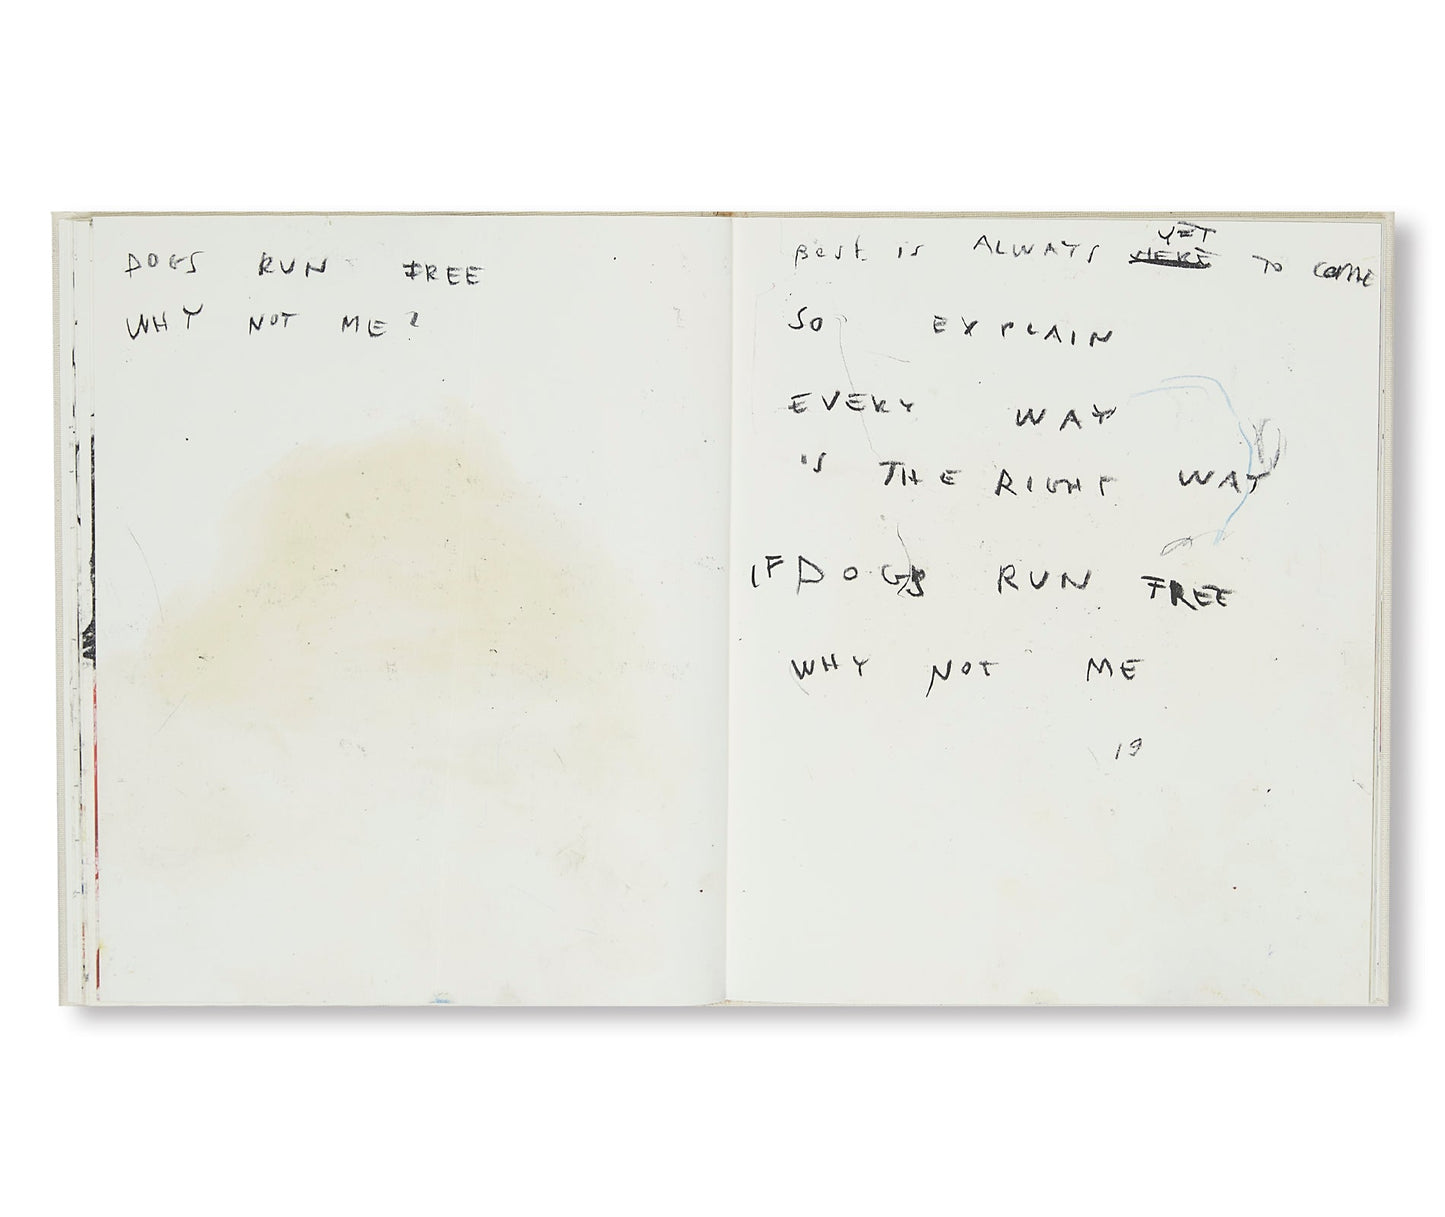 DOGS RUN FREE
WHY NOT ME?
BEST IS ALWAYS YET HERE TO COME
SO EXPLAIN
EVERY WAY
IS THE RIGHT WAY
IF DOGS RUN FREE
WHY NOT ME
19